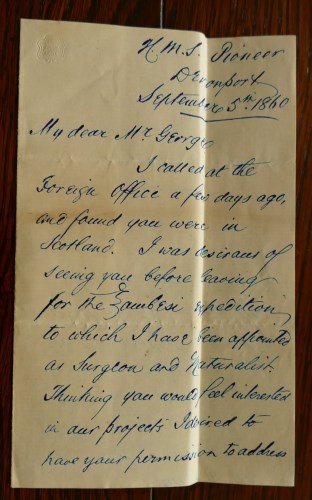 H.M.S. Pioneer
Devonport
September 5th 1860
My dear Mr. George
I called at the
Foreign Office a few days ago,
and found you were in
Scotland. I was desirous of
seeing you before leaving
for the Zambesi expedition
to which I have been appointed
as Surgeon and Naturalist.
Thinking you would feel interested
in our projects I desired to
have your permission to address